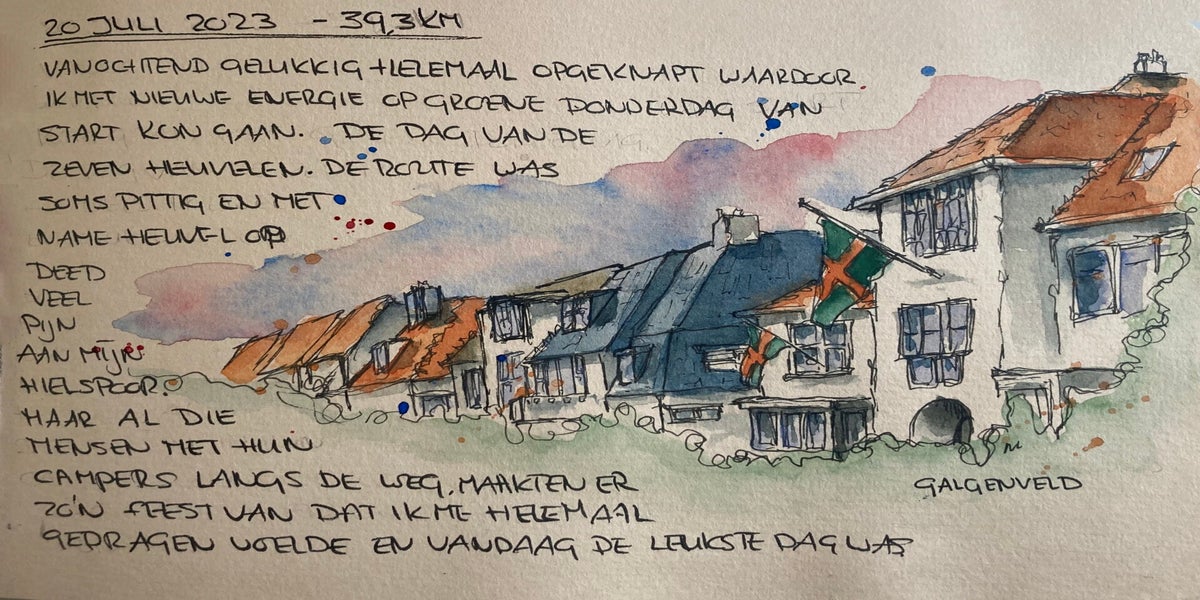 20 JULI 2023 - 39,3KM
VANOCHTEND GELUKKIG HELEMAAL OPGEKNAPT WAARDOOR
IK MET NIEUWE ENERGIE OP GROENE DONDERDAG VAN
START KON GAAN. DE DAG VAN DE
ZEVEN HEUVELEN. DE ROUTE WAS
SOMS PITTIG EN MET
NAME HEUVEL OP
DEED
VEEL
PIJN
AAN MIJN
HIELSPOOR.
MAAR AL DIE
MENSEN MET HUN
CAMPERS LANGS DE WEG, MAAKTEN ER
ZO'N FEEST VAN DAT IK ME HELEMAAL
GEDRAGEN VOELDE EN VANDAAG DE LEUKSTE DAG WAS
GALGENVELD